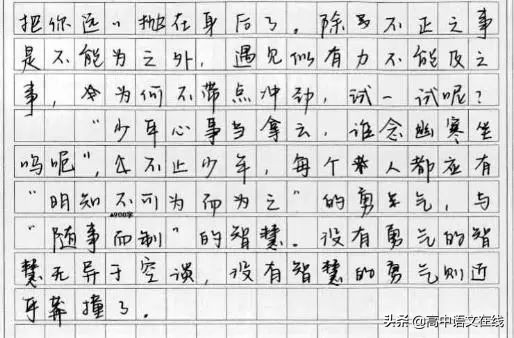 把你远〃抛在身后了。除了不正之事
是不能为之外，遇见似有力不能及之
事，为何不带点冲劲，试一试呢？
“少年心事当拿云，谁念幽寒坐
呜呃”，本不止少年，每个人都应有
“明知不可为而为之”的勇气，与
▲900字
“随事而制”的智慧。没有勇气的智
慧无异于空谈，没有智慧的勇气则近
乎莽撞了。
头条@高中语文在线